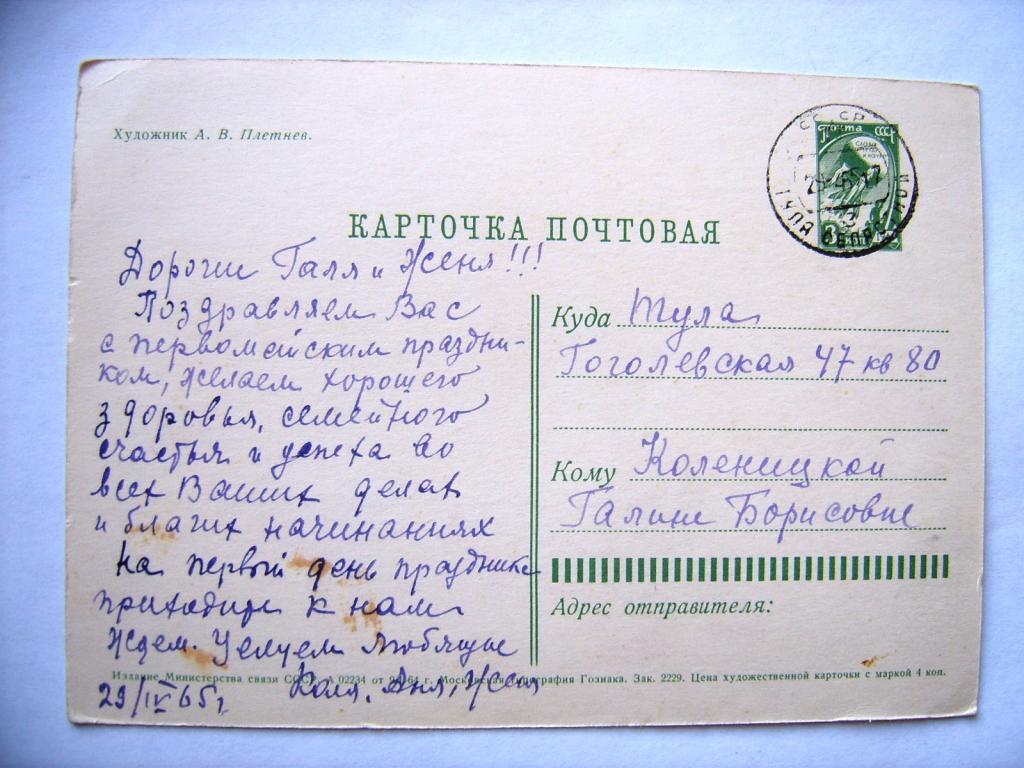 Художник А. В. Плетнев.
Почта СССР
СССР
ТУЛА
КАРТОЧКА ПОЧТОВАЯ
Дорогие Галя и Женя!!!
Поздравляем Вас
с первомайским праздни-
ком, желаем хорошего
здоровья, семейного
счастья и успеха во
всех Ваших делах
и благих начинаниях
На первый день праздника
приходите к нам
Ждем. Целуем Любящие
Коля, Аня, Женя
29/IV 65 г.
Куда Тула
Гоголевская 47 кв 80
Кому Коленицкой
Галине Борисовне
Адрес отправителя:
Издание Министерства связи СССР. А 02234 от 64 г. Московская типография Гознака. Зак. 2229. Цена художественной карточки с маркой 4 коп.